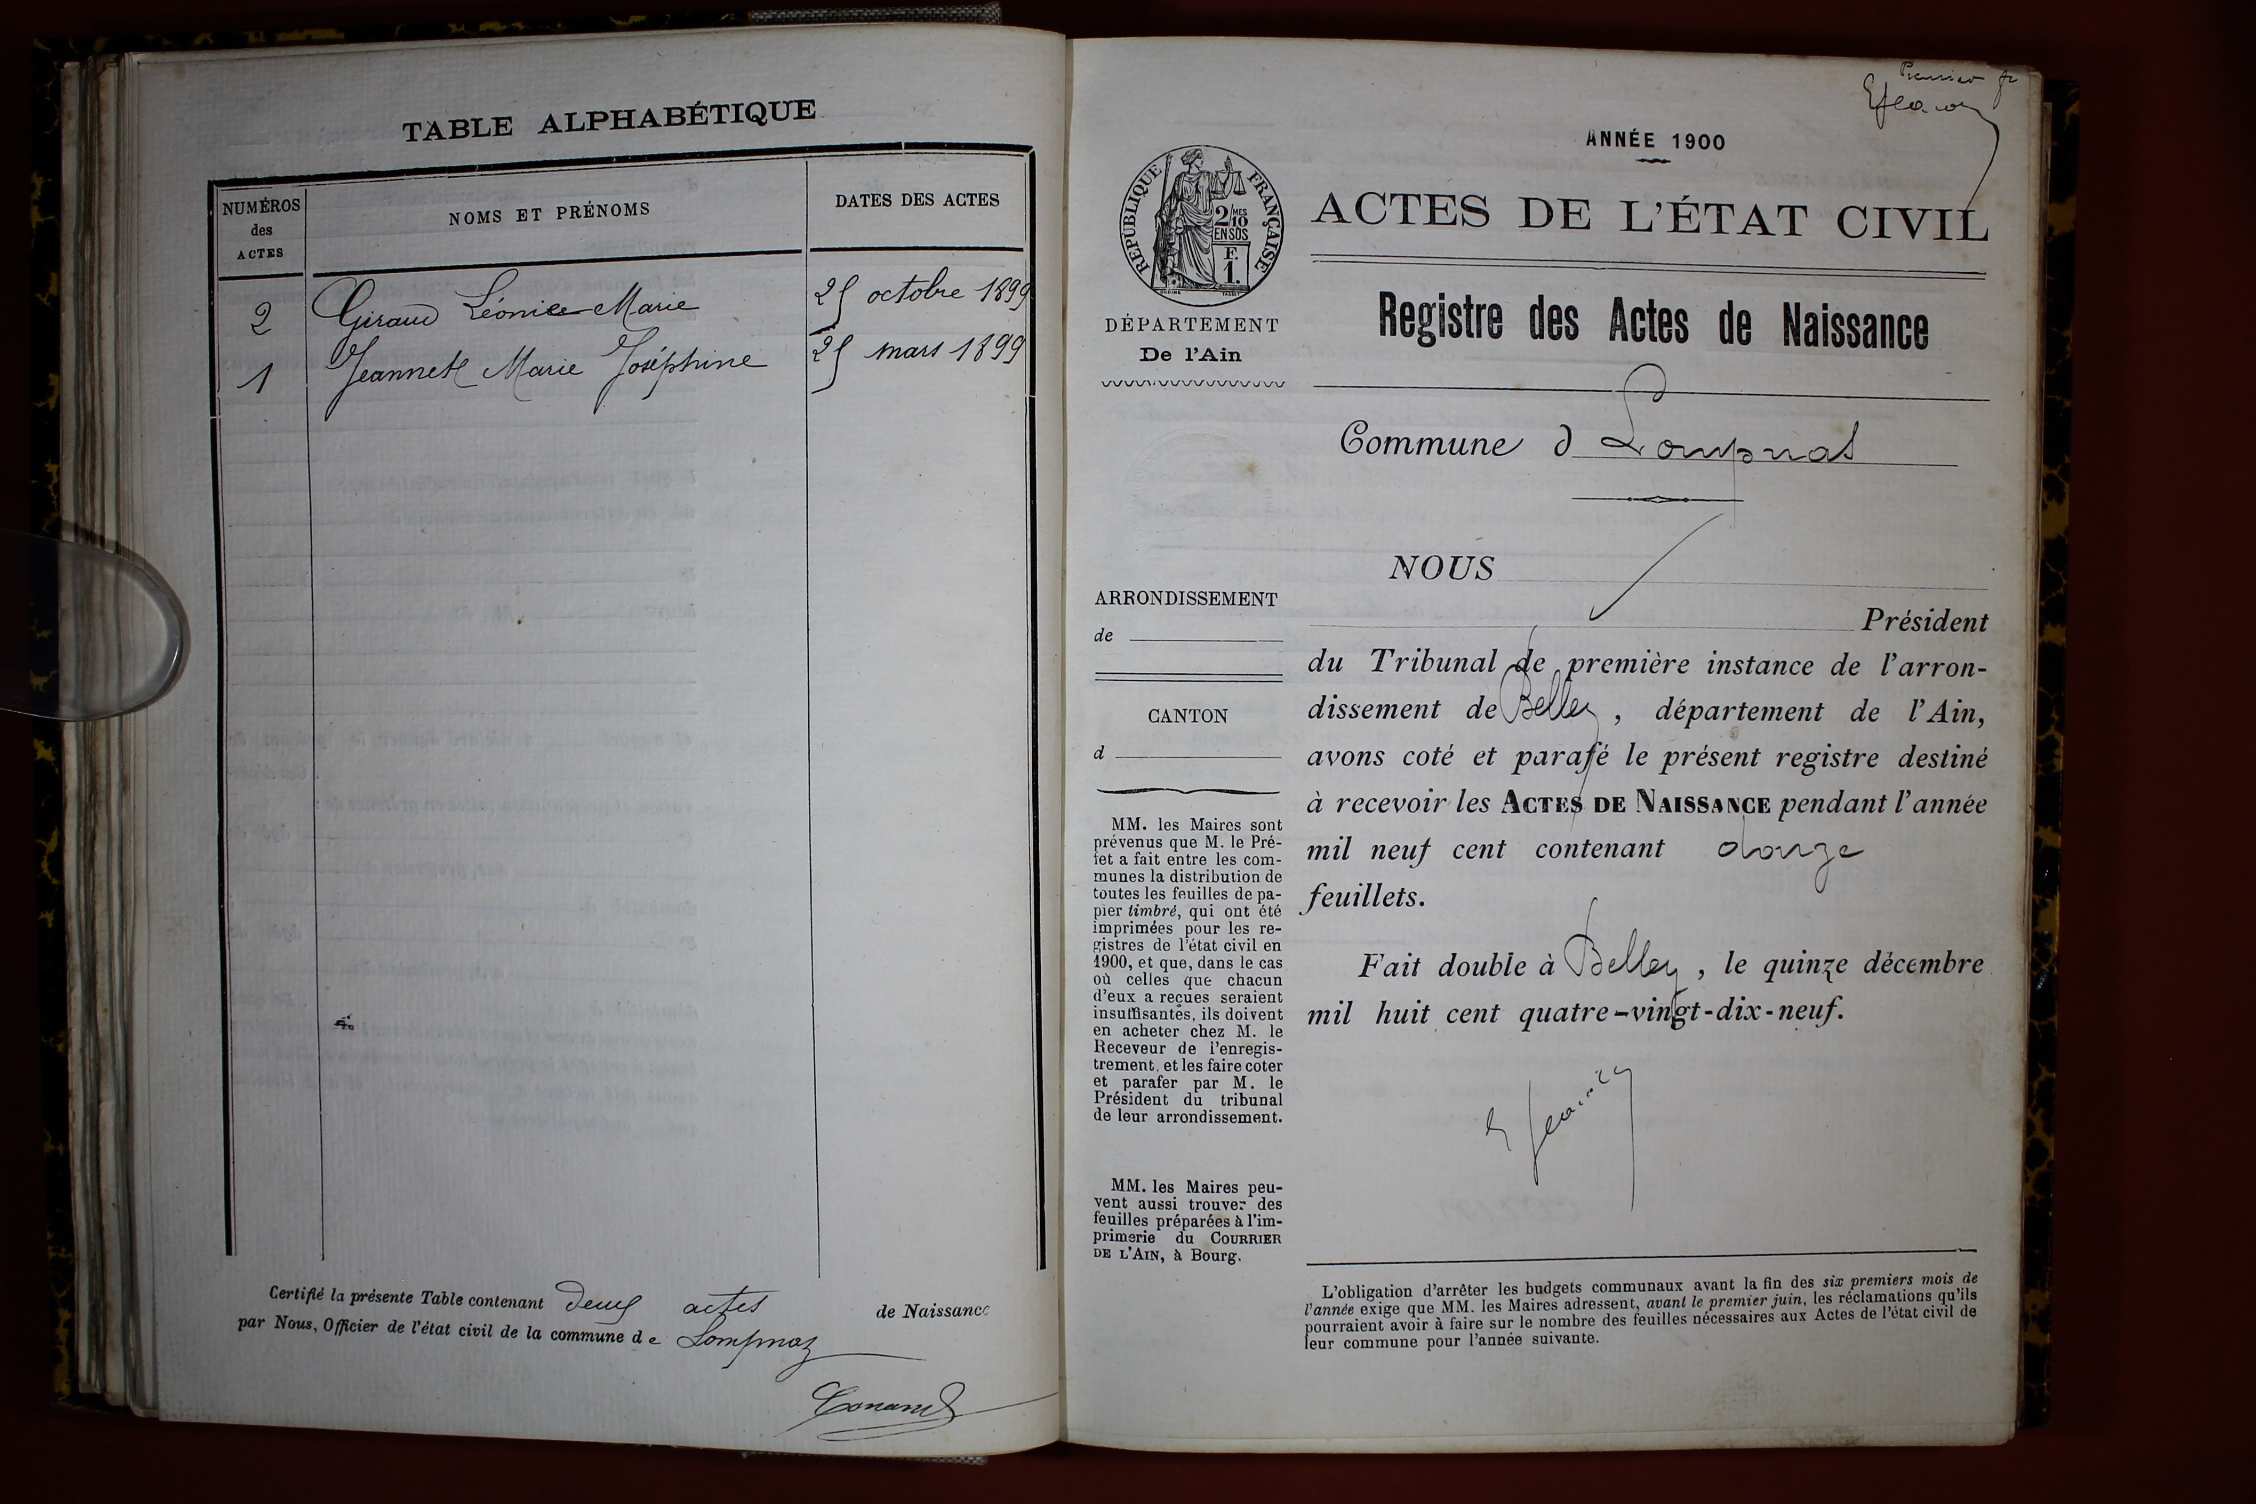 TABLE ALPHABÉTIQUE
NUMÉROS
des
ACTES
NOMS ET PRÉNOMS
DATES DES ACTES
2 Giraud Léonice Marie 25 octobre 1899
1 Jeannet Marie Joséphine 25 mars 1899
Certifié la présente Table contenant deux actes de Naissance
par Nous, Officier de l'état civil de la commune de Lompnaz
Conand
Premier
ANNÉE 1900
RÉPUBLIQUE FRANÇAISE
2/MES
10
EN SUS
F.
1.
DÉPARTEMENT
De l'Ain
ACTES DE L'ÉTAT CIVIL
Registre des Actes de Naissance
Commune d Lompnas
ARRONDISSEMENT
de
CANTON
d
MM. les Maires sont
prévenus que M. le Pré-
fet a fait entre les com-
munes la distribution de
toutes les feuilles de pa-
pier timbré, qui ont été
imprimées pour les re-
gistres de l'état civil en
1900, et que, dans le cas
où celles que chacun
d'eux a reçues seraient
insuffisantes, ils doivent
en acheter chez M. le
Receveur de l'enregis-
trement, et les faire coter
et parafer par M. le
Président du tribunal
de leur arrondissement.
MM. les Maires peu-
vent aussi trouver des
feuilles préparées à l'im-
primerie du COURRIER
DE L'AIN, à Bourg.
NOUS
Président
du Tribunal de première instance de l'arron-
dissement de Belley, département de l'Ain,
avons coté et parafé le présent registre destiné
à recevoir les ACTES DE NAISSANCE pendant l'année
mil neuf cent contenant douze
feuillets.
Fait double à Belley, le quinze décembre
mil huit cent quatre-vingt-dix-neuf.
L'obligation d'arrêter les budgets communaux avant la fin des six premiers mois de
l'année exige que MM. les Maires adressent, avant le premier juin, les réclamations qu'ils
pourraient avoir à faire sur le nombre des feuilles nécessaires aux Actes de l'état civil de
leur commune pour l'année suivante.